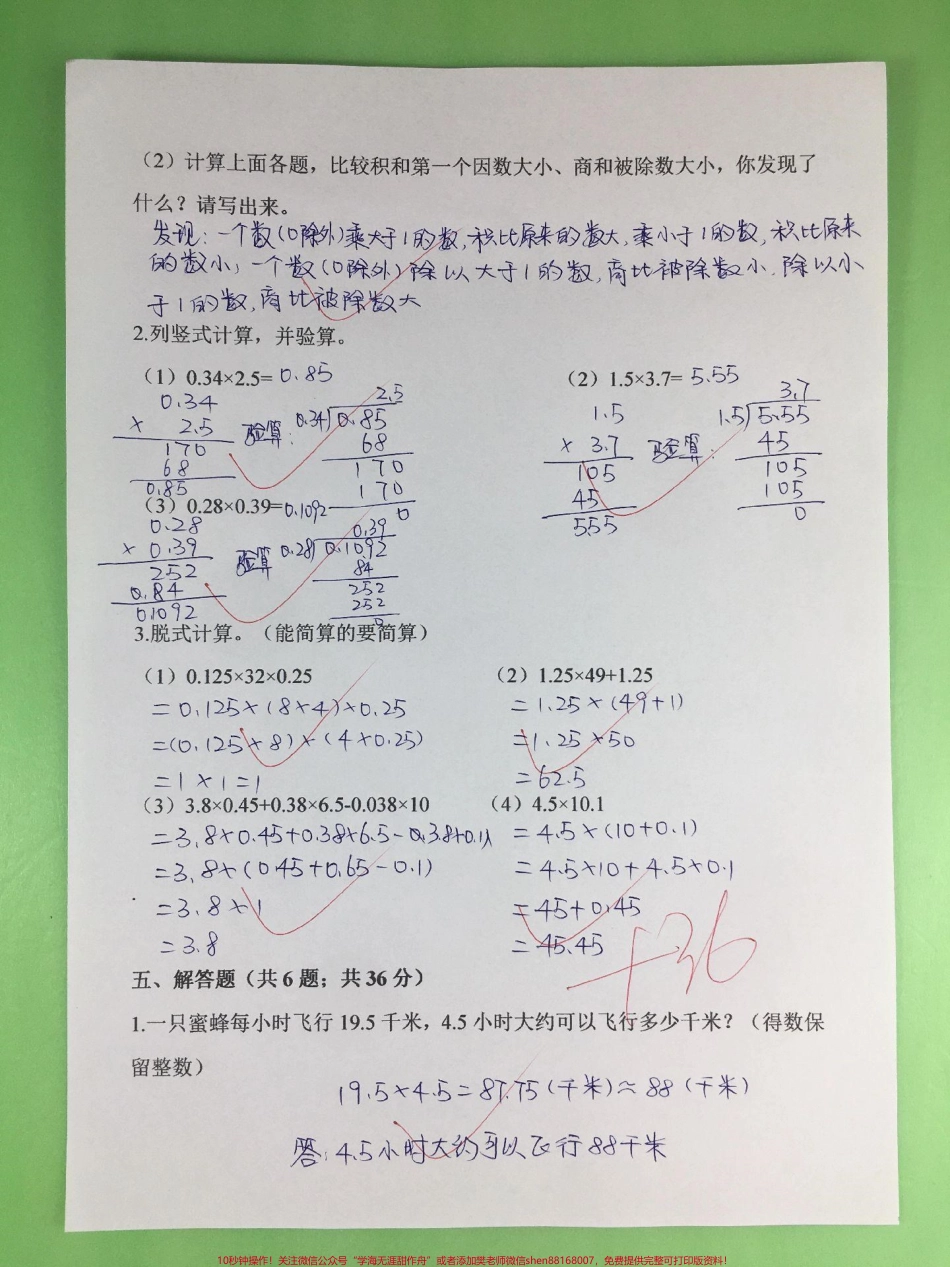 （2）计算上面各题，比较积和第一个因数大小、商和被除数大小，你发现了
什么？请写出来。
发现：一个数（0除外）乘大于1的数，积比原来的数大，乘小于1的数，积比原来
的数小；一个数（0除外）除以大于1的数，商比被除数小，除以小
于1的数，商比被除数大
2.列竖式计算，并验算。
（1）0.34×2.5= 0.85
0.34
× 2.5
170
68
0.85
验算：
2.5
0.34 0.85
68
170
170
0
（2）1.5×3.7= 5.55
1.5
× 3.7
105
45
5.55
验算：
3.7
1.5 5.55
45
105
105
0
（3）0.28×0.39=0.1092
0.28
× 0.39
252
0.84
0.1092
验算
0.39
0.28 0.1092
84
252
252
0
3.脱式计算。（能简算的要简算）
（1）0.125×32×0.25
=0.125×(8×4)×0.25
=(0.125×8)×(4×0.25)
=1×1=1
（2）1.25×49+1.25
=1.25×(49+1)
=1.25×50
=62.5
（3）3.8×0.45+0.38×6.5-0.038×10
=3.8×0.45+0.38×6.5-
=3.8×(0.45+0.65-0.1)
=3.8×1
=3.8
（4）4.5×10.1
=4.5×(10+0.1)
=4.5×10+4.5×0.1
=45+0.45
=45.45
+36
五、解答题（共6题；共36分）
1.一只蜜蜂每小时飞行 19.5 千米，4.5 小时大约可以飞行多少千米？（得数保
留整数）
19.5×4.5=87.75(千米)≈88(千米)
答：4.5小时大约可以飞行88千米
10秒钟操作！关注微信公众号“学海无涯甜作舟”或者添加樊老师微信shen88168007，免费提供完整可打印版资料！